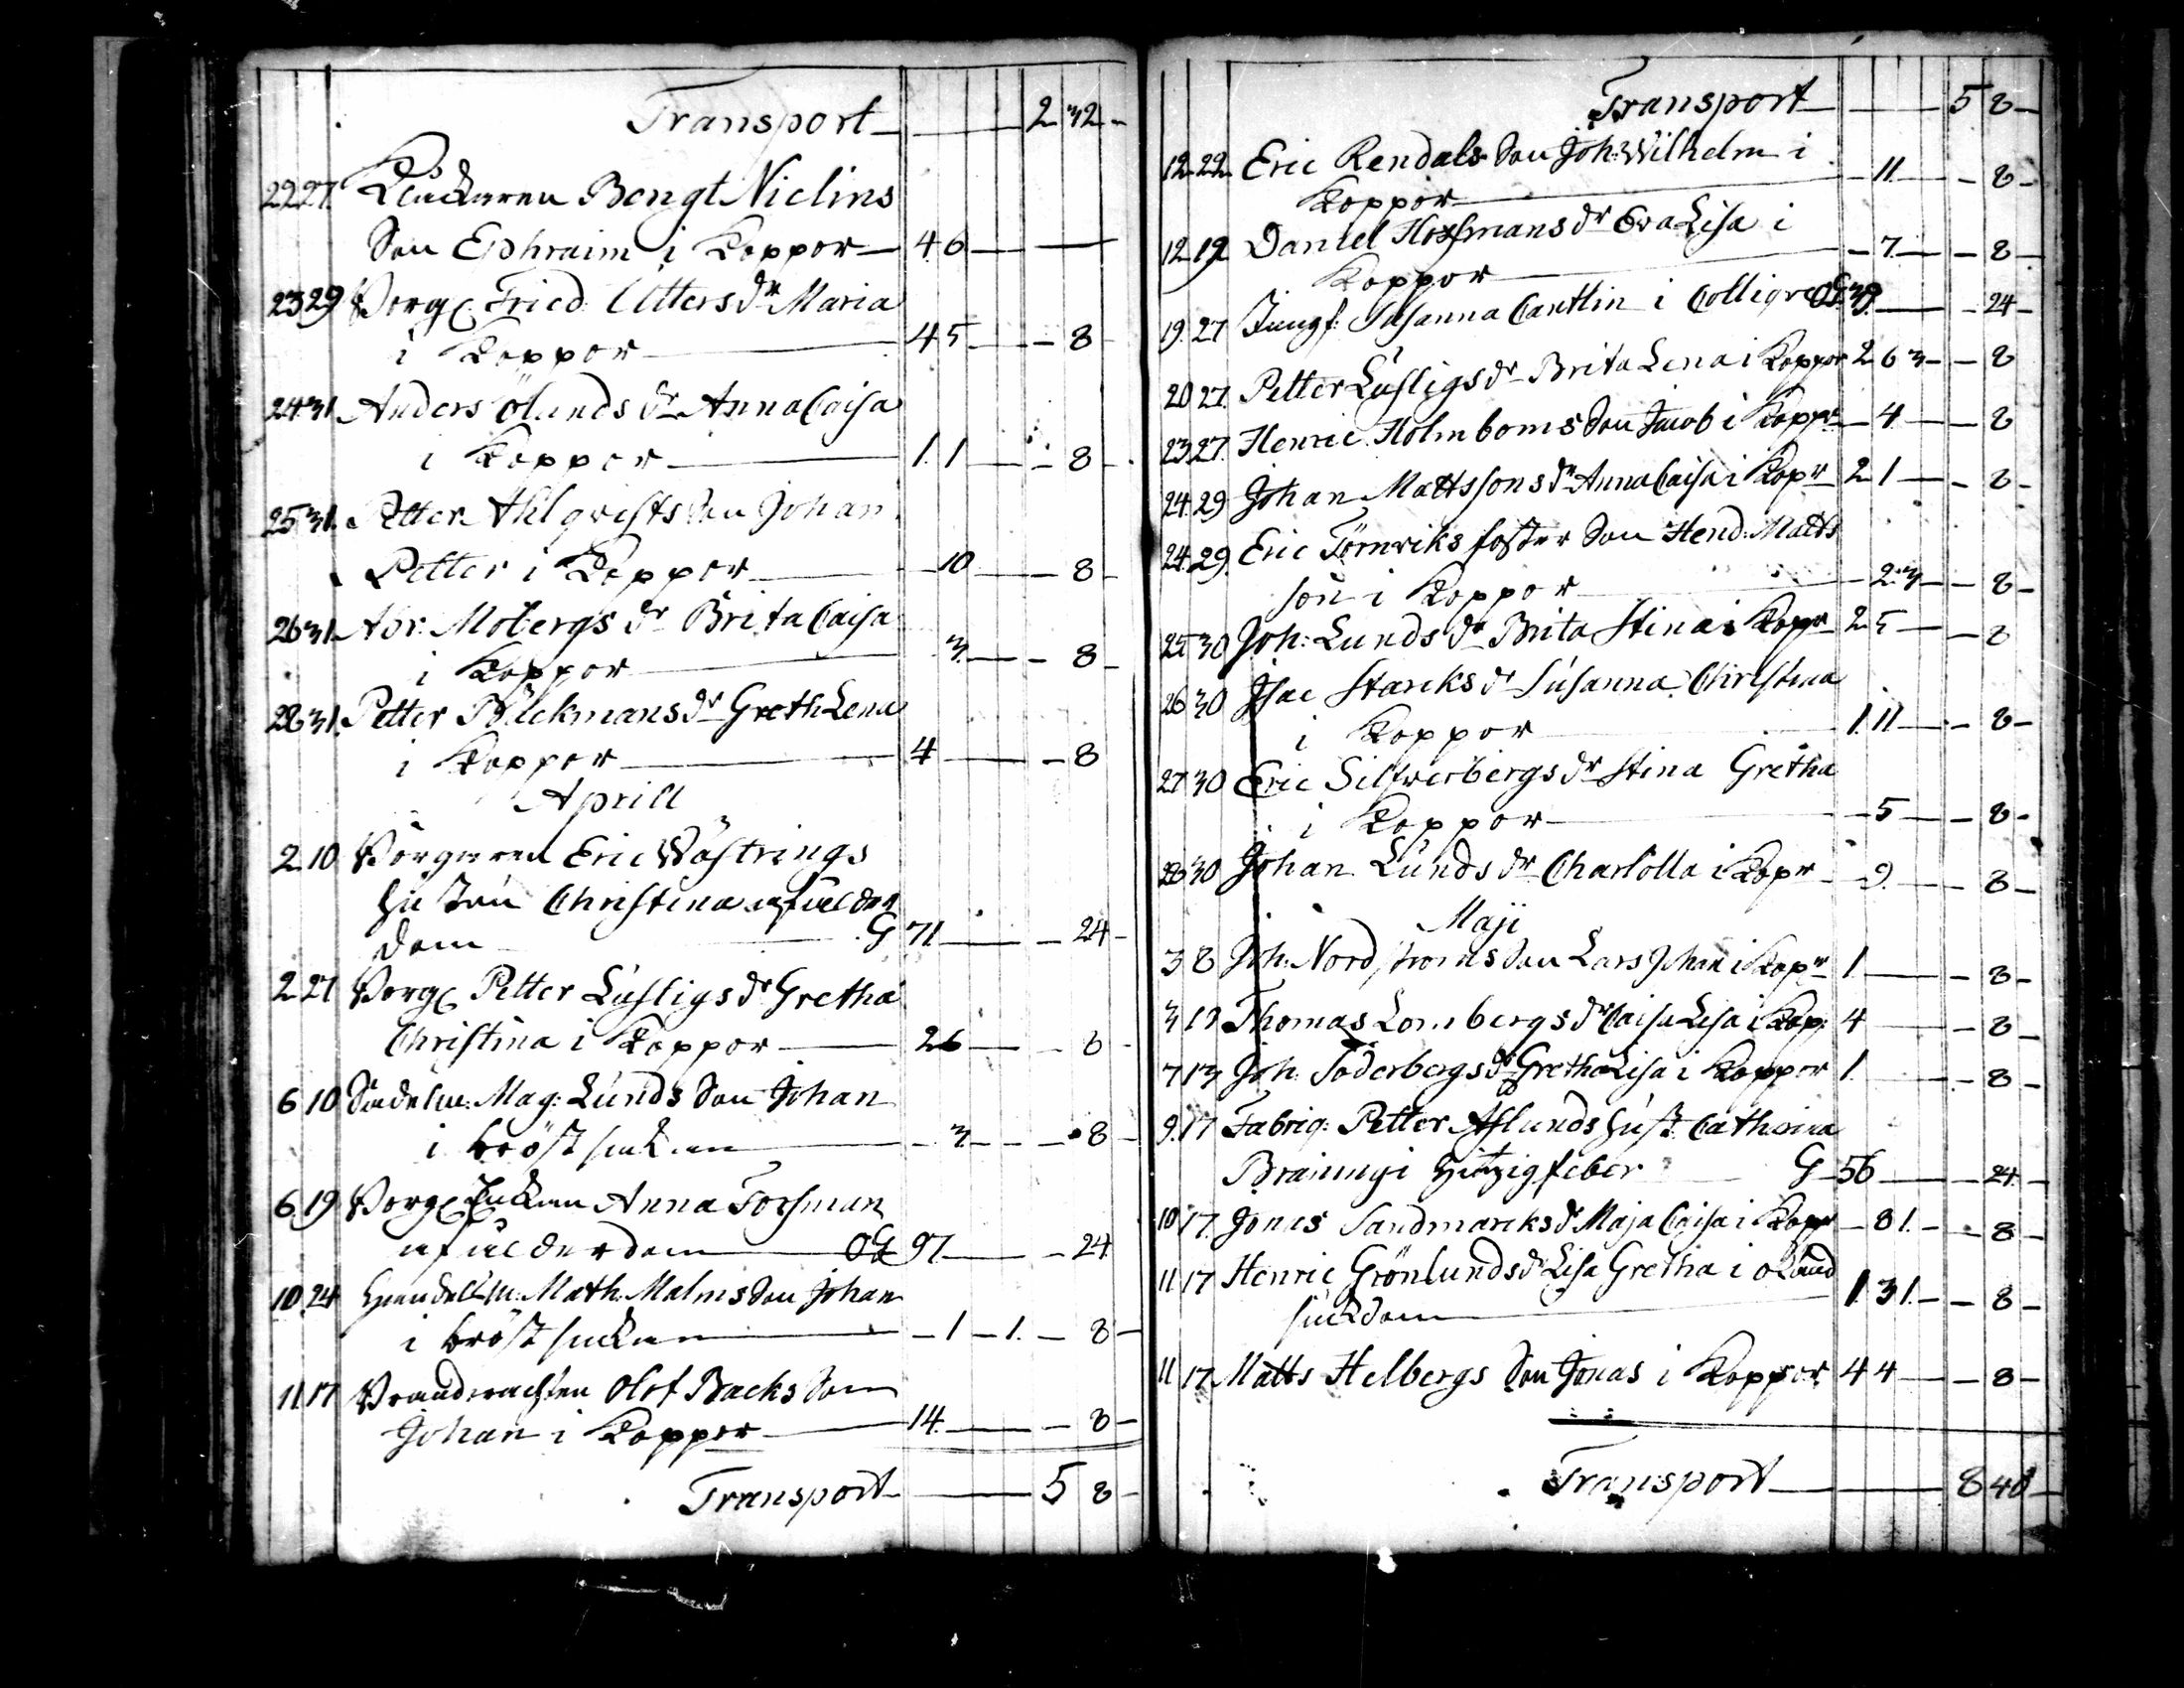 Transport 2 32
22 27 Klåckaren Bengt Niclins
Son Ephraim i Koppor 4 6
23 29 Borg. Fried. Utters dr Maria
i Koppor 4 5 8
24 31 Anders Ölunds dr Anna Caisa
i Koppor 1. 1 8
25 31. Petter Ahlqvists Son Johan
Petter i Koppor 10 8
26 31 Abr: Mobergs dr Brita Caisa
i Koppor 3. 8
28 31. Petter Bäckmans dr Greth Lena
i Koppor 4 8
Aprill
2 10 Borgaren Eric Wästrings
Hustru Christina af ålder
dom G 71 24
2 27 Borg. Petter Lustigs dr Gretha
Christina i Koppor 2 6 8
6 10 Mag: Lunds Son Johan
i bröstsiukan 3 8
6 19 Borg. Enkan Anna Forsman
af ålderdom OG 97 24
10. 24 Handelsm: Math: Malms Son Johan
i bröstsiukan 1 1. 8
11 17 Brandvachten Olof Backs Son
Johan i Koppor 14. 8
Transport 5 8
Transport 5 8
12 22 Eric Rendals Son Joh: Wilhelm i
Koppor 11. 8
12 19 Daniel dr Eva Lisa i
Koppor 7. 8
19. 27 Jungf: Susanna Cantlin i Colliqve OG. 39. 24
20 27. Petter Lustigs dr Brita Lena i Koppor 2 6 3 8
23 27. Henric Holmboms Son Jacob i Koppr 4. 8
24 29 Johan Mattssons dr Anna Caisa i Kopr 2 1 8
24. 29. Eric Törnviks foster Son Hend: Matts
son i Koppor 2. 3 8
25 30 Joh: Lunds dr Brita Stina i Kopr 2 5 8
26 30 Isac Starcks dr Susanna Christina
i Koppor 1. 11 8
27 30 Eric Silfwerbergs dr Stina Gretha
i Koppor 5 8
28 30 Johan Lunds dr Charlotta i Kopr 9. 8
Maji
3 8 Joh: Nordstroms Son Lars Johan i Kopr 1 8
3 13 Thomas Lombergs dr Caisa Lisa i Kop: 4 8
7 13 Joh: Söderbergs dr Gretha Lisa i Koppor 1. 8
9. 17 Fabriq: Petter Aslunds Hust: Catharina
i Hitzigfeber G 56 24.
10 17. Jonas Sandmarcks dr Maja Caisa i Kopr 8 1. 8
11 17 Henric Grönlunds dr Lisa Gretha i okänd
siukdom 1. 3 1. 8
11 17 Matts Helbergs Son Jonas i Koppor 4 4 8
Transport 8 40